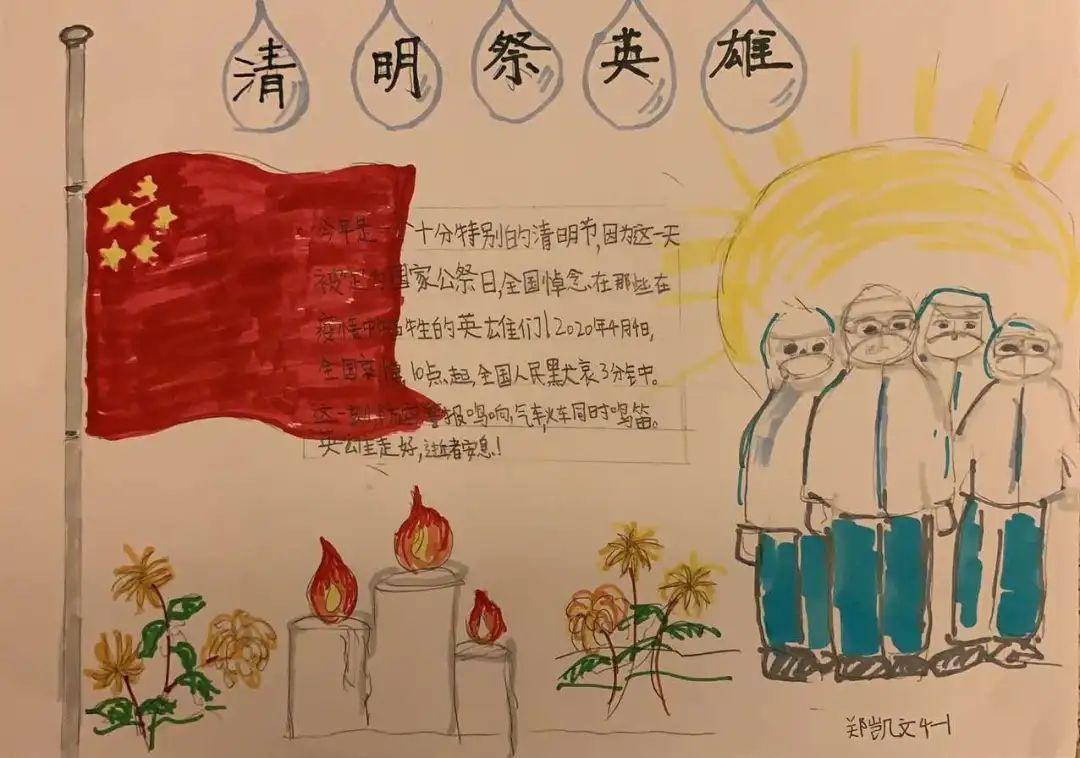 清明祭英雄
今年是一个十分特别的清明节,因为这一天
被定为国家公祭日,全国悼念在那些在
疫情中牺牲的英雄们!2020年4月4日,
全国哀悼,10点起,全国人民默哀3分钟中。
这一刻,防空警报鸣响,汽车,火车同时鸣笛。
英雄走好,逝者安息!
郑凯文4-1